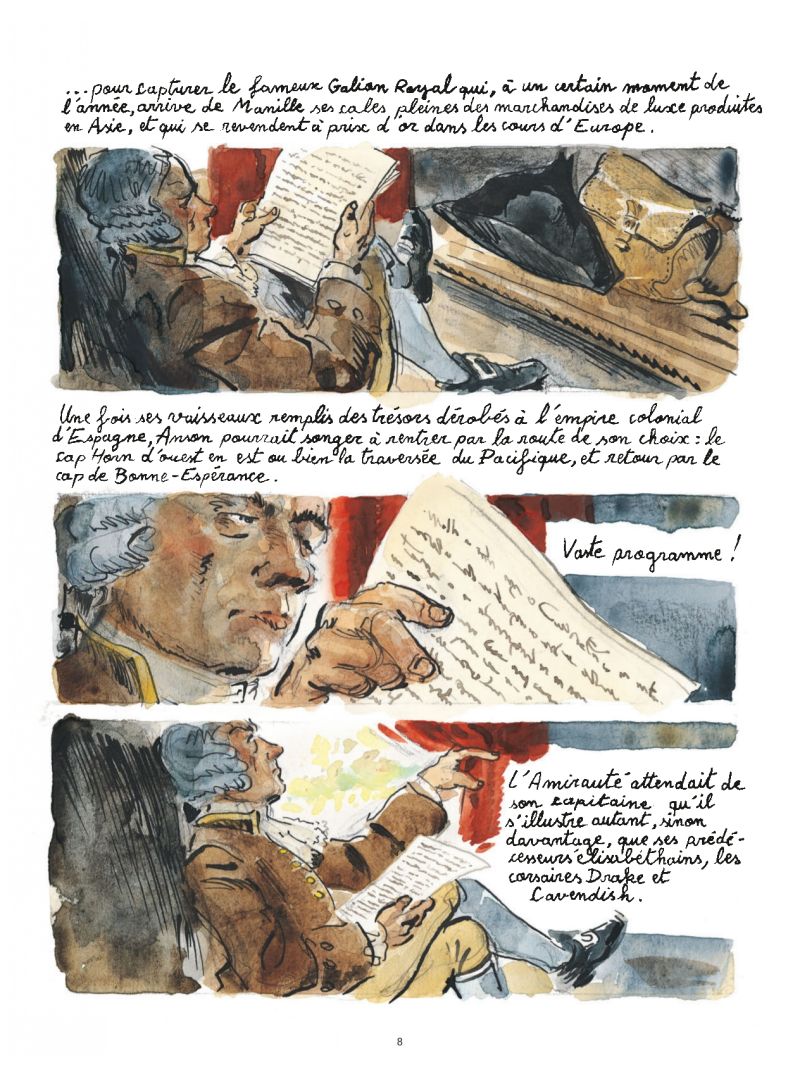 ...pour capturer le fameux Galion Royal qui, à un certain moment de
l'année, arrive de Manille ses cales pleines des marchandises de luxe produites
en Asie, et qui se revendent à prix d'or dans les cours d'Europe.
Une fois ses vaisseaux remplis des trésors dérobés à l'empire colonial
d'Espagne, Anson pourrait songer à rentrer par la route de son choix : le
cap Horn d'ouest en est ou bien la traversée du Pacifique, et retour par le
cap de Bonne-Espérance.
Vaste programme !
L'Amirauté attendait de
son capitaine qu'il
s'illustre autant, sinon
davantage, que ses prédé-
cesseurs élisabéthains, les
corsaires Drake et
Cavendish.
8